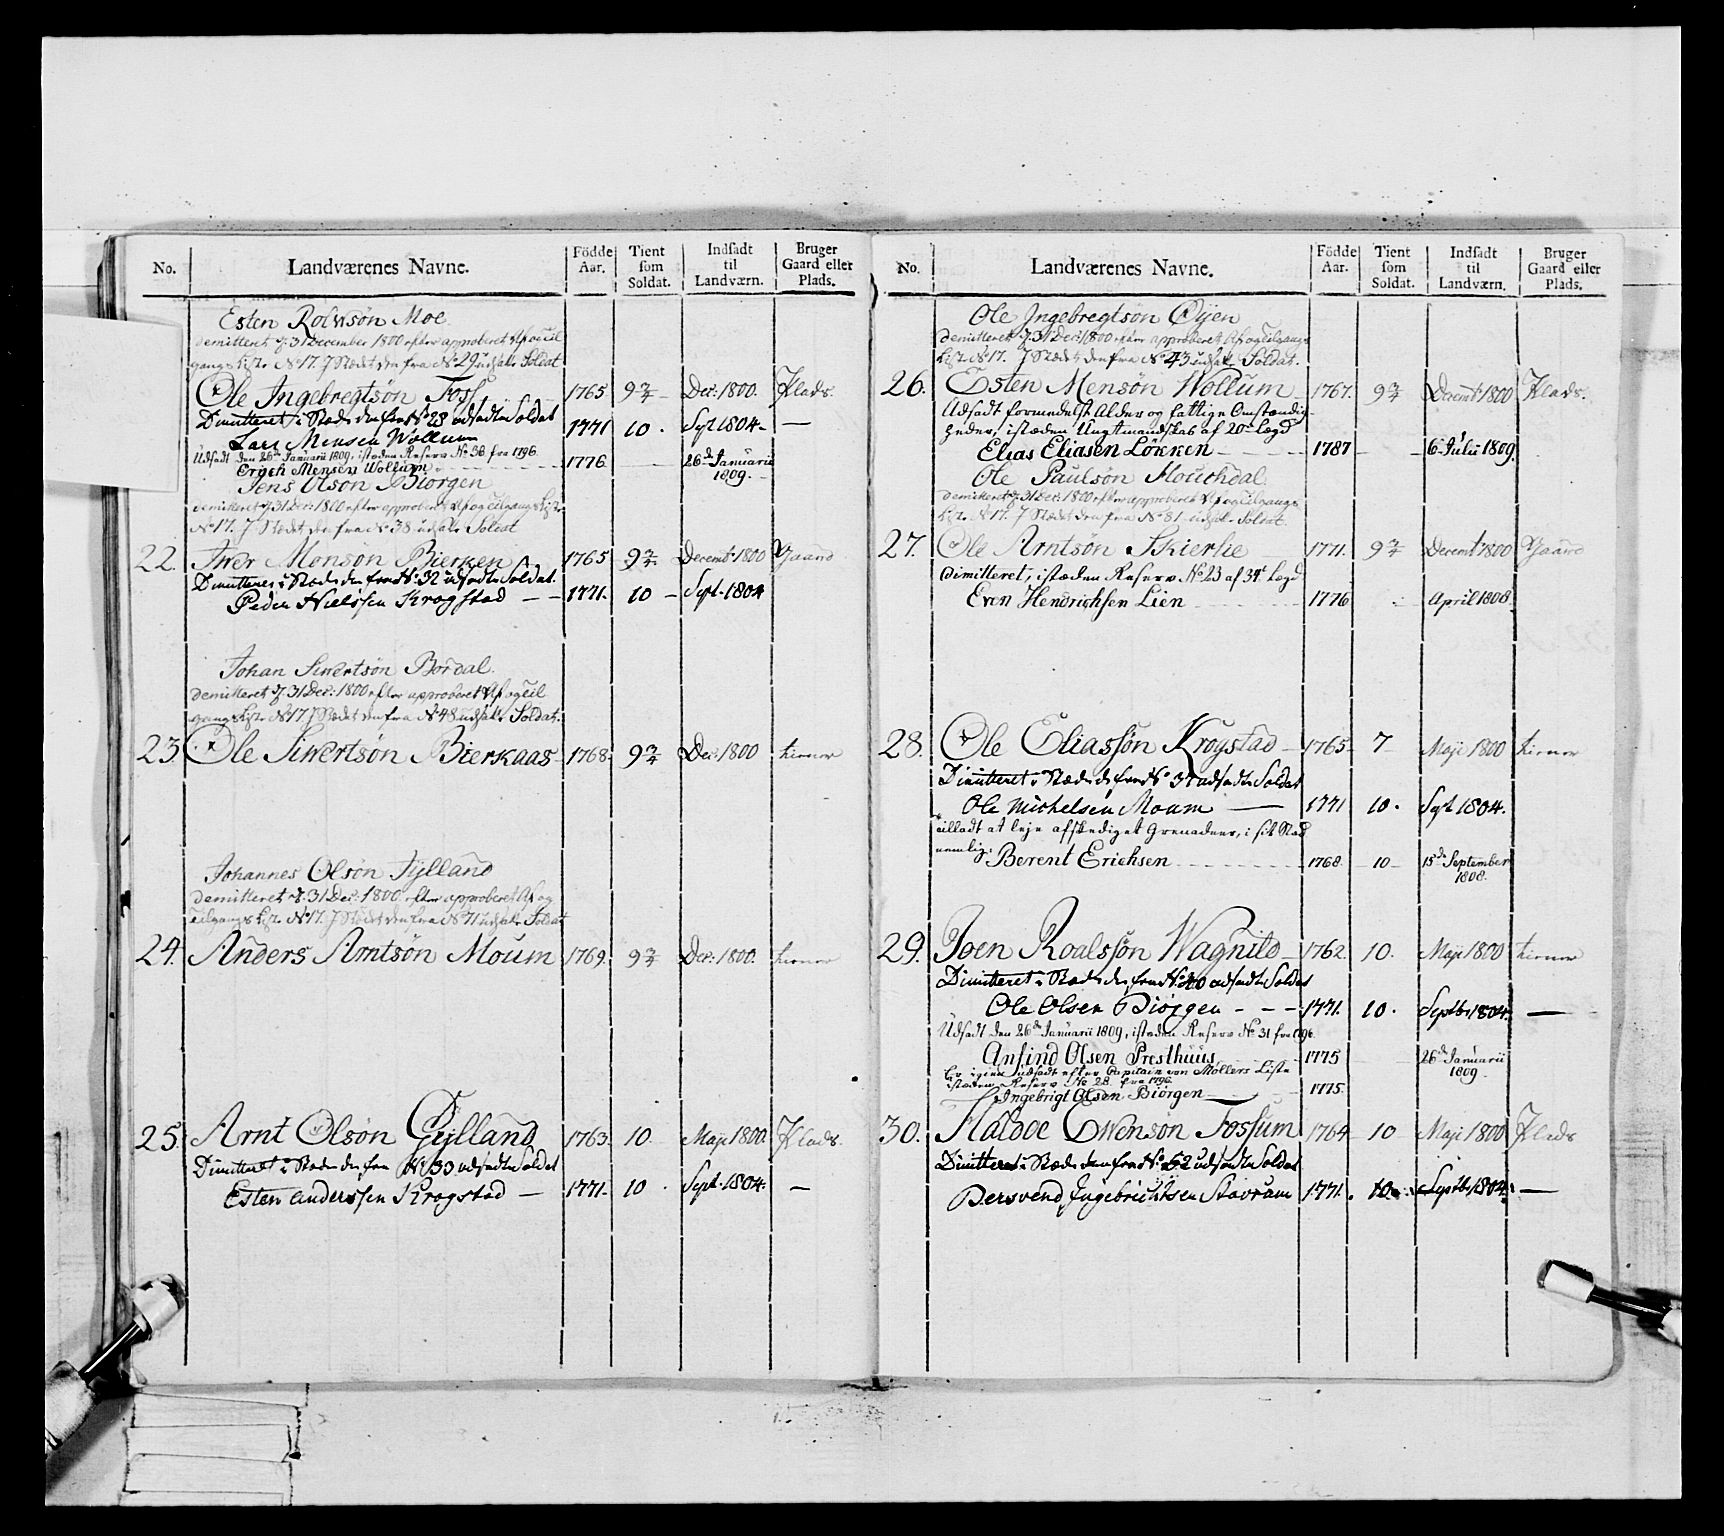 No. Landværenes Navne. Födde Aar. Tient som Soldat. Indsadt til Landværn. Bruger Gaard eller Plads.
Esten Rolvsön Moe
demitteret d. 31 December 1800 efter approberet Af og Til
gangs Liste No 17. I Stædet den fra No 29 udsatte Soldat
Ole Ingebregtsön Foss 1765 9 2/4 Dec: 1800. Plads.
Dimitteret i Stæde den fra No 28 udsadte Soldat
Lars Mensen Wollum 1771 10. Sept 1804. —
Udsadt den 26de Januarii 1809, isteden Reserv No 36 fra 1796.
Erich Mensen Wollum 1776. 26de Januarii 1809.
Jens Olsön Biörgen
demitteret d. 31 Dec: 1800 efter approberet Af og Tilgangs Liste
No 17. I Stædet den fra No 38 udsatte Soldat
22. Iver Monsön Bierken 1765 9 2/4 Decemb: 1800 Gaard
Dimitteret i Stæde den fra No: 32 udsadte Soldat.
Peder Nielssen Krogstad — 1771. 10 — Sept. 1804
Johan Siwertsön Bordal.
demitteret d. 31 Dec: 1800 efter approberet Af og Til
gangs Liste No 17 I Stædet den fra No 48 udsatte Soldat.
23. Ole Siwertsön Bierkaas 1768. 9 2/4 Dec: 1800
Johannes Olsön Tylland
demitteret d. 31 Dec: 1800 efter approberet Af og
Tilgangs Liste No 17. I Stædet den fra No 71 udsatte Soldat
24. Anders Arntsön Moum 1769. 9 2/4 Dec: 1800.
25. Arnt Olsön Gylland 1763. 10 Maji 1800. Plads.
Dimitteret i Stæde den fra No 33 udsadte Soldat
Esten Anderssen Krogstad — 1771. 10. Sept. 1804. —
No. Landværenes Navne. Födde Aar. Tient som Soldat. Indsadt til Landværn. Bruger Gaard eller Plads.
Ole Ingebregtsön Öyen
demitteret d. 31 Dec: 1800 efter approberet Af og Tilgangs
Liste No 17. I Stædet den fra No 43 udsatte Soldat.
26. Esten Mensön Wollum 1767. 9 2/4 Decemb: 1800 Plads.
Udsadt formedelst Alder og fattige Omstændig-
heder, isteden Ungtmandskab af 20de Lægd
Elias Eliasen Lökken 1787 6 Julii 1809.
Ole Paulsön Houchdal.
demitteret d. 31 Dec: 1800 efter approberet Af og Tilgangs
Liste No 17. I Stædet den fra No 81 udsatte Soldat.
27. Ole Arntsön Skierlie 1771. 9 2/4 Decemb: 1800 Gaard
dimitteret, isteden Reserv No 23 af 34t Lægd
Even Hendrichsen Lien 1776 April 1808
28. Ole Eliassön Krogstad 1765 7 Maji 1800
Dimitteret i Stæde den fra No 37 udsadte Soldat
Ole Michelsen Moum — 1771 10. Sept 1804.
tilladt at leje afskediget Grenadeer, i sit Sted
nemlig: Berent Erichsen 1768. 10 15de September 1808.
29. Joen Roalssön Wagnild 1762. 10. Maji 1800
Dimitteret i Stæde den fra No 40 udsadte Soldat
Ole Olsen Biörgen 1771. 10. Septb: 1804. —
Udsadt den 26de Januarii 1809, isteden Reserv No 31 fra 1796.
Anfind Olsen Presthuus 1775 26de Januarii 1809
Er igien Udsadt efter Capitain von Möllers Liste
isteden Reserv No 28. fra 1796.
Ingebrigt Olsen Biörgen 1775.
30. Haldoe Ewensön Fossum 1764 10 Maji 1800 Plads
Dimitteret i Stæde den fra No: 52 udsadte Soldat
Bersvend Ingebrichtsen Stavrum 1771. 10. Septb: 1804. —